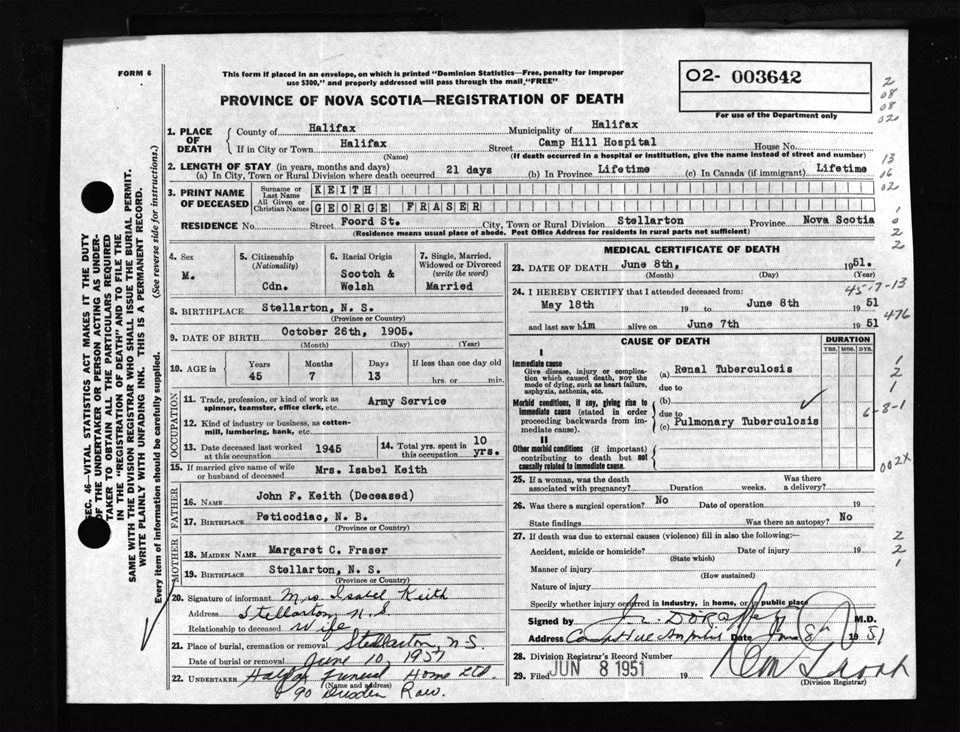 FORM 6
This form if placed in an envelope, on which is printed "Dominion Statistics—Free, penalty for improper
use $300," and properly addressed will pass through the mail "FREE"
PROVINCE OF NOVA SCOTIA—REGISTRATION OF DEATH
O2- 003642
For use of the Department only
SEC. 46—VITAL STATISTICS ACT MAKES IT THE DUTY
OF THE UNDERTAKER OR PERSON ACTING AS UNDER-
TAKER TO OBTAIN ALL THE PARTICULARS REQUIRED
IN THE "REGISTRATION OF DEATH" AND TO FILE THE
SAME WITH THE DIVISION REGISTRAR WHO SHALL ISSUE THE BURIAL PERMIT.
WRITE PLAINLY WITH UNFADING INK. THIS IS A PERMANENT RECORD.
Every item of information should be carefully supplied. (See reverse side for instructions.)
1. PLACE OF DEATH
County of Halifax Municipality of Halifax
If in City or Town Halifax Street Camp Hill Hospital House No.
(Name) (If death occurred in a hospital or institution, give the name instead of street and number)
2. LENGTH OF STAY (in years, months and days)
(a) In City, Town or Rural Division where death occurred 21 days (b) In Province Lifetime (c) In Canada (if immigrant) Lifetime
3. PRINT NAME OF DECEASED
Surname or Last Name KEITH
All Given or Christian Names GEORGE FRASER
RESIDENCE No. Street Foord St. City, Town or Rural Division Stellarton Province Nova Scotia
(Residence means usual place of abode. Post Office Address for residents in rural parts not sufficient)
4. Sex
M.
5. Citizenship
(Nationality)
Cdn.
6. Racial Origin
Scotch &
Welsh
7. Single, Married,
Widowed or Divorced
(write the word)
Married
8. BIRTHPLACE Stellarton, N. S.
(Province or Country)
9. DATE OF BIRTH October 26th, 1905.
(Month) (Day) (Year)
10. AGE in Years Months Days If less than one day old
45 7 13 hrs. or min.
OCCUPATION
11. Trade, profession, or kind of work as
spinner, teamster, office clerk, etc. Army Service
12. Kind of industry or business, as cotton-
mill, lumbering, bank, etc.
13. Date deceased last worked
at this occupation 1945
14. Total yrs. spent in
this occupation 10 yrs.
15. If married give name of wife
or husband of deceased Mrs. Isabel Keith
FATHER
16. NAME John F. Keith (Deceased)
17. BIRTHPLACE Peticodiac, N. B.
(Province or Country)
MOTHER
18. MAIDEN NAME Margaret C. Fraser
19. BIRTHPLACE Stellarton, N. S.
(Province or Country)
20. Signature of informant Mrs Isabel Keith
Address Stellarton, N.S.
Relationship to deceased Wife
21. Place of burial, cremation or removal Stellarton, N.S.
Date of burial or removal June 10, 1951
22. UNDERTAKER Halifax Funeral Home Ltd.
(Name and address)
90 Dresden Row.
MEDICAL CERTIFICATE OF DEATH
23. DATE OF DEATH June 8th, 1951.
(Month) (Day) (Year)
24. I HEREBY CERTIFY that I attended deceased from:
May 18th 19 to June 8th 1951
and last saw him alive on June 7th 1951
CAUSE OF DEATH
DURATION
YRS. MOS. DYS.
I
Immediate cause
Give disease, injury or complica-
tion which caused death, NOT the
mode of dying, such as heart failure,
asphyxia, asthenia, etc.
(a) Renal Tuberculosis
due to
Morbid conditions, if any, giving rise to
immediate cause (stated in order
proceeding backwards from im-
mediate cause).
(b)
due to
(c) Pulmonary Tuberculosis
II
Other morbid conditions (if important)
contributing to death but not
causally related to immediate cause.
25. If a woman, was the death
associated with pregnancy? Duration weeks. Was there
a delivery?
26. Was there a surgical operation? No Date of operation 19
State findings Was there an autopsy? No
27. If death was due to external causes (violence) fill in also the following:—
Accident, suicide or homicide? Date of injury 19
(State which)
Manner of injury
(How sustained)
Nature of injury
Specify whether injury occurred in industry, in home, or in public place
Signed by M.D.
Address Camp Hill Hospital Date June 8th 1951
28. Division Registrar's Record Number
29. Filed JUN 8 1951 19
(Division Registrar)
2
08
08
02
13
16
02
1
0
2
2
45-7-13
476
1
2
1
6-8-1
002X
2
2
1